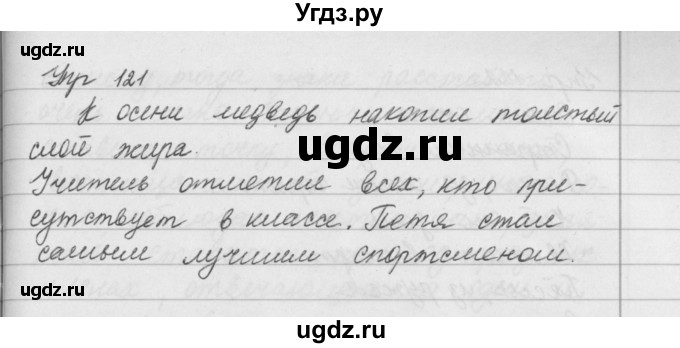 Угдз.ру
ugdz.ru
ugdz.ru
Упр 121
К осени медведь накопил толстый
слой жира.
ugdz.ru
ugdz.ru
Учитель отметил всех, кто при-
сутствует в классе. Петя стал
самым лучшим спортсменом.
ugdz.ru
ugdz.ru
ugdz.ru